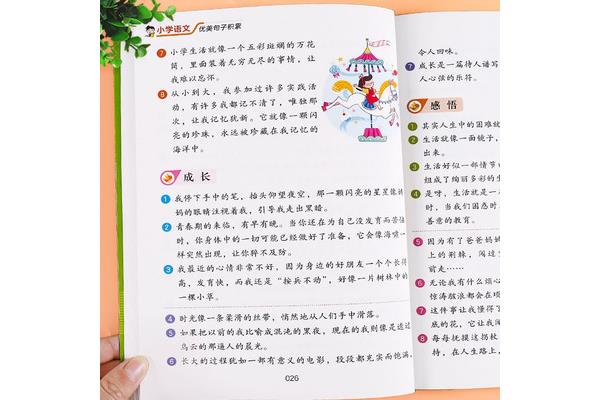 小学语文 优美句子积累
7 小学生活就像一个五彩斑斓的万花
筒,里面装着无穷无尽的事情,让
我难以忘怀。
8 从小到大,我参加过许多实践活
动,有许多我都记不清了,唯独那
次,让我记忆犹新。它就像一颗闪
亮的珍珠,永远被珍藏在我记忆的
海洋中。
成长
1 我停下手中的笔,抬头仰望夜空,那一颗闪亮的星星像
妈的眼睛注视着我,引导我走出黑暗。
2 青春期的来临,有早有晚。当你还在为自己没发育而苦
时,你身体中的一切可能已经做好了准备,它会像海啸一
样突然出现,让你猝不及防。
3 我最近的心情非常不好,因为身边的好朋友一个个长
高,发育快,而我还是“按兵不动”,好像一片树林中的
一棵小草。
4 时光像一条柔滑的丝带,悄然地从人们手中滑落。
5 如果把以前的我比喻成混沌的黑夜,现在的我则像是透过
乌云的那逼人的晨光。
6 长大的过程犹如一部有意义的电影,段段都充实而饱满。
026
令人回味。
7 成长是一篇待人谱写
人心弦的乐符。
感悟
1 其实人生中的困难就
2 生活就像一面镜子,
出来。
3 生活好似一部情节
组成了绚丽多彩的生
4 是呀,生活就是一
时,当我们困惑时
善意的教育。
5 因为有了爸爸妈妈
上的荆棘,闯过
前走……
6 无论我有什么烦心
惊涛骇浪都会在顷
7 这件事让我懂得了
底的花,它让我
8 每每抚摸这拐杖
待,在人生路上,